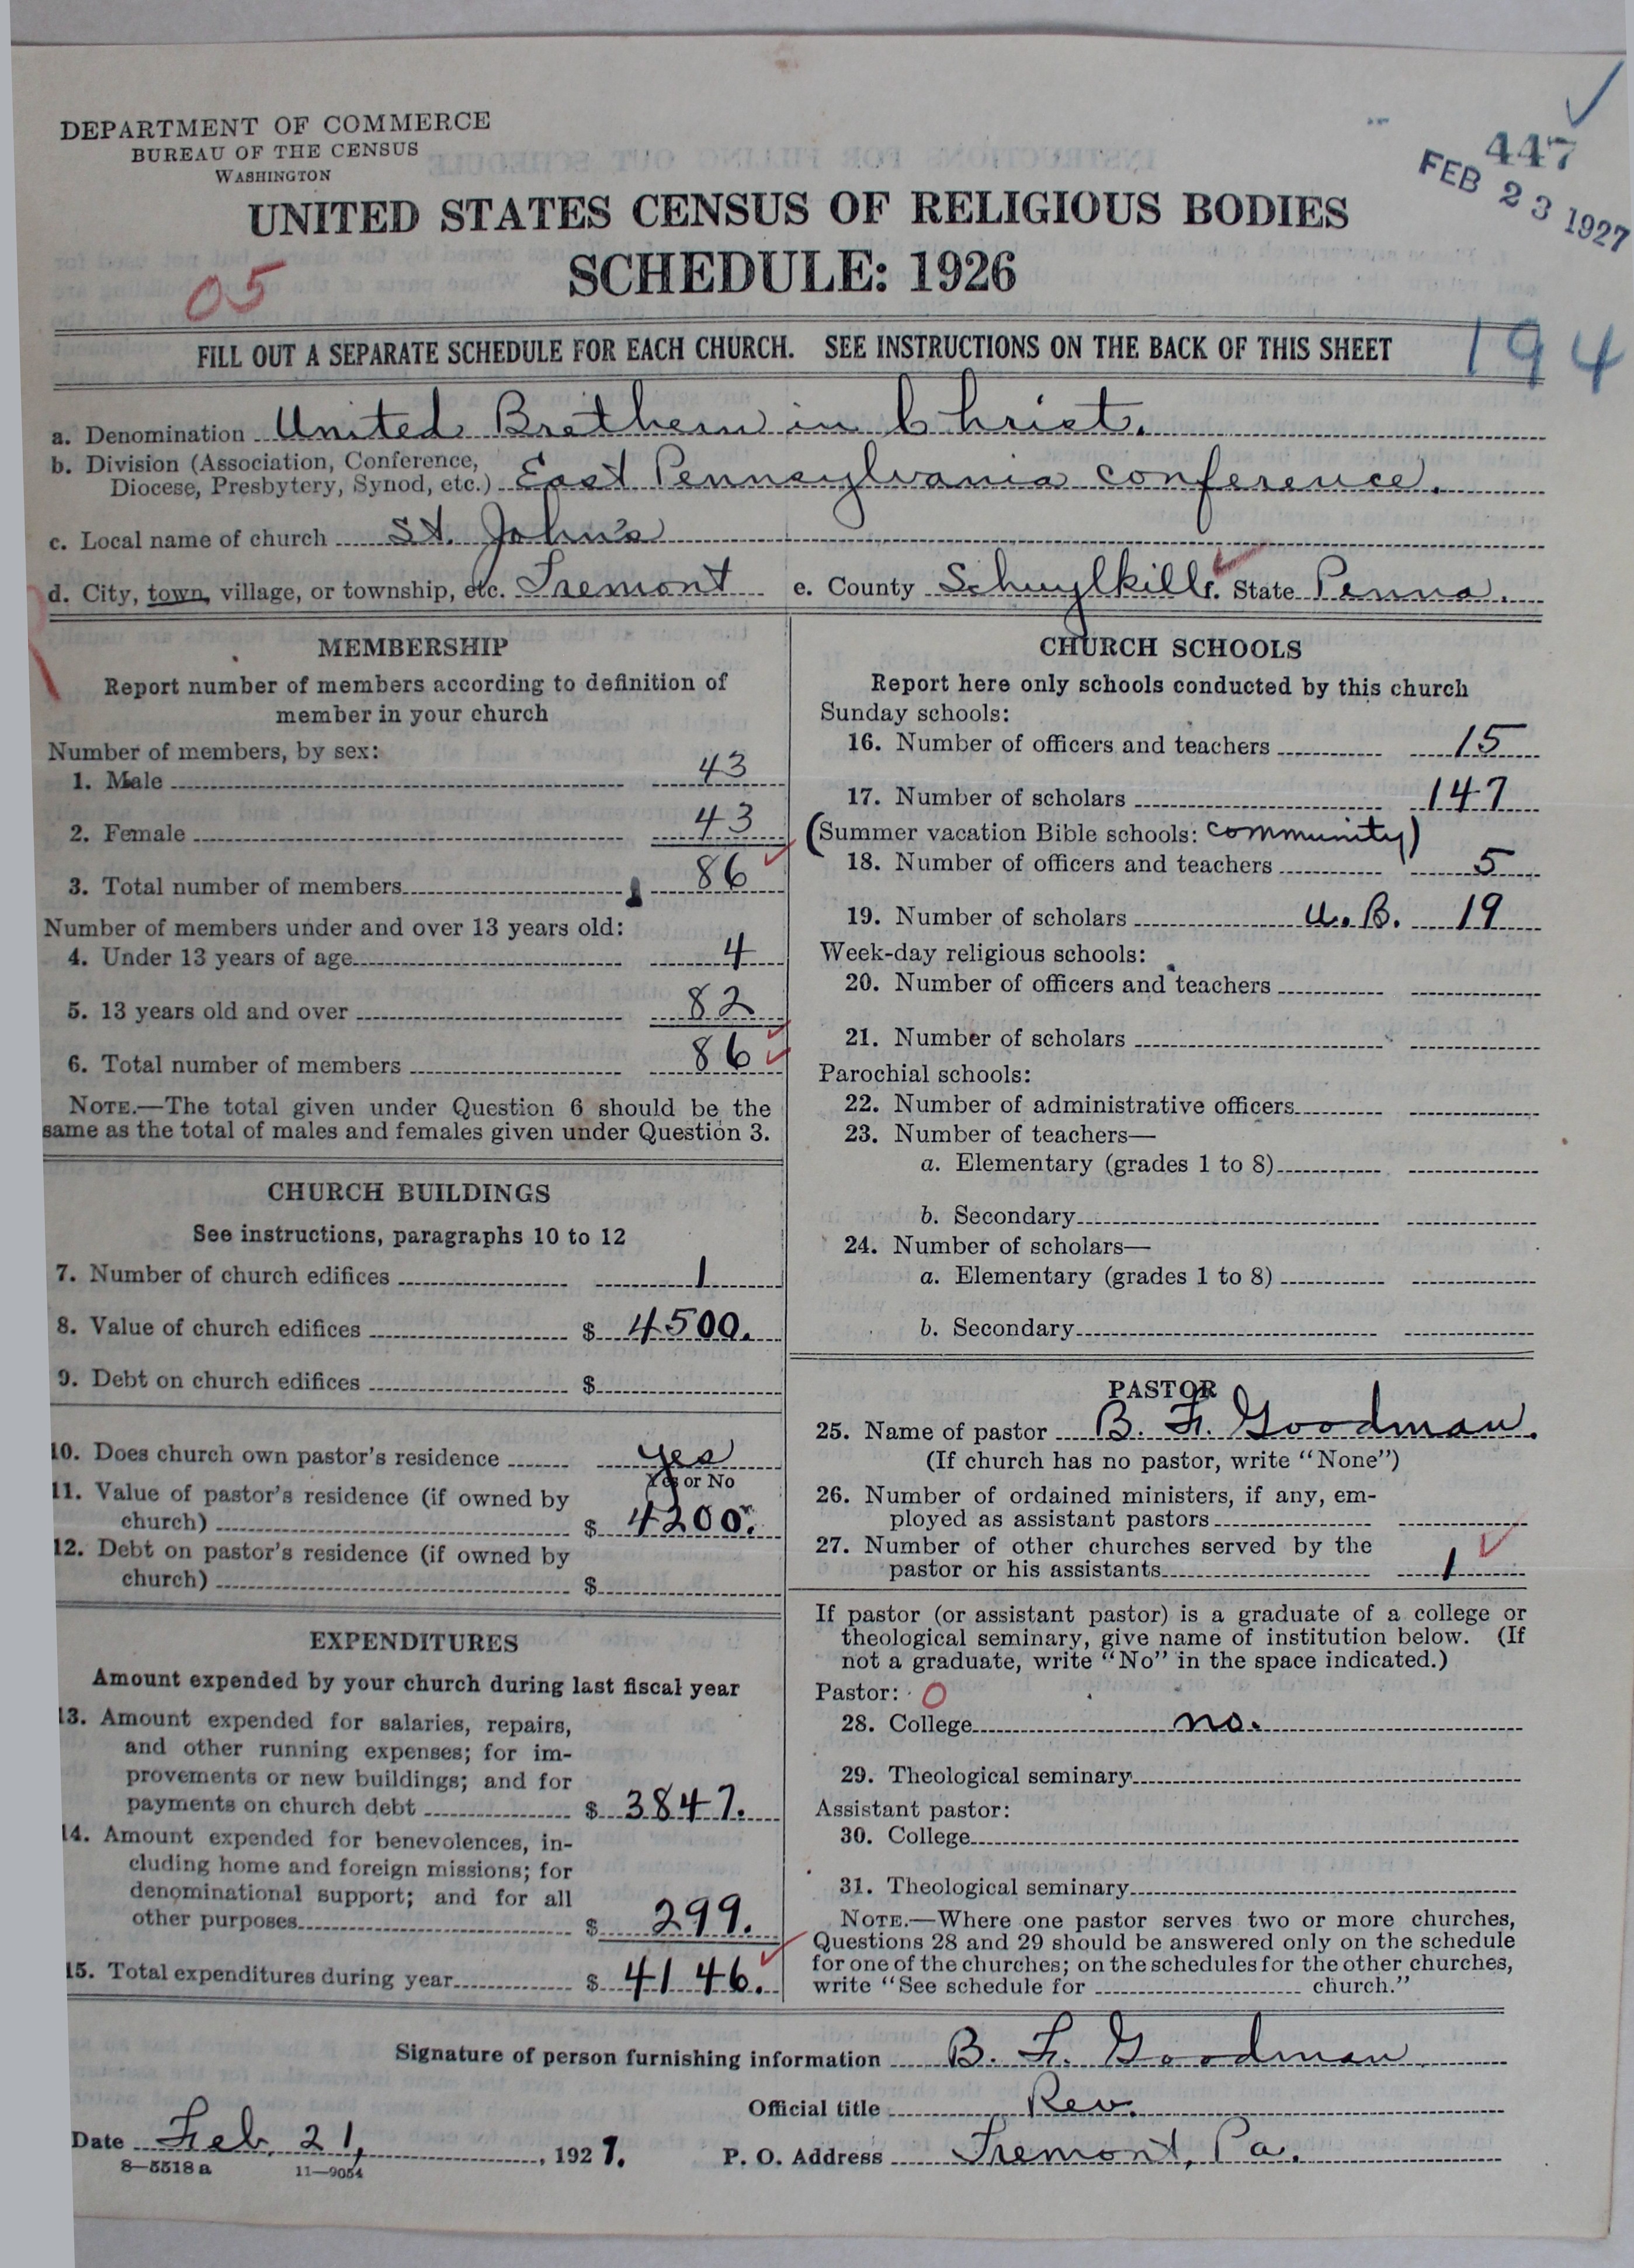 DEPARTMENT OF COMMERCE
BUREAU OF THE CENSUS
WASHINGTON
447
FEB 23 1927
UNITED STATES CENSUS OF RELIGIOUS BODIES
SCHEDULE: 1926
05
FILL OUT A SEPARATE SCHEDULE FOR EACH CHURCH. SEE INSTRUCTIONS ON THE BACK OF THIS SHEET
194
a. Denomination United Brethern in Christ.
b. Division (Association, Conference,
Diocese, Presbytery, Synod, etc.) East Pennsylvania conference.
c. Local name of church St. John's
d. City, town, village, or township, etc. Tremont e. County Schuylkill f. State Penna.
MEMBERSHIP
Report number of members according to definition of
member in your church
Number of members, by sex:
1. Male 43
2. Female 43
3. Total number of members 86
Number of members under and over 13 years old:
4. Under 13 years of age 4
5. 13 years old and over 82
6. Total number of members 86
NOTE.—The total given under Question 6 should be the
same as the total of males and females given under Question 3.
CHURCH BUILDINGS
See instructions, paragraphs 10 to 12
7. Number of church edifices 1
8. Value of church edifices $ 4500.
9. Debt on church edifices $
10. Does church own pastor's residence yes
Yes or No
11. Value of pastor's residence (if owned by
church) $ 4200.
12. Debt on pastor's residence (if owned by
church) $
EXPENDITURES
Amount expended by your church during last fiscal year
13. Amount expended for salaries, repairs,
and other running expenses; for im-
provements or new buildings; and for
payments on church debt $ 3847.
14. Amount expended for benevolences, in-
cluding home and foreign missions; for
denominational support; and for all
other purposes $ 299.
15. Total expenditures during year $ 4146.
CHURCH SCHOOLS
Report here only schools conducted by this church
Sunday schools:
16. Number of officers and teachers 15
17. Number of scholars 147
(Summer vacation Bible schools: community)
18. Number of officers and teachers 5
19. Number of scholars U. B. 19
Week-day religious schools:
20. Number of officers and teachers
21. Number of scholars
Parochial schools:
22. Number of administrative officers
23. Number of teachers—
a. Elementary (grades 1 to 8)
b. Secondary
24. Number of scholars—
a. Elementary (grades 1 to 8)
b. Secondary
PASTOR
25. Name of pastor B. F. Goodman.
(If church has no pastor, write "None")
26. Number of ordained ministers, if any, em-
ployed as assistant pastors
27. Number of other churches served by the
pastor or his assistants 1
If pastor (or assistant pastor) is a graduate of a college or
theological seminary, give name of institution below. (If
not a graduate, write "No" in the space indicated.)
Pastor: 0
28. College no.
29. Theological seminary
Assistant pastor:
30. College
31. Theological seminary
NOTE.—Where one pastor serves two or more churches,
Questions 28 and 29 should be answered only on the schedule
for one of the churches; on the schedules for the other churches,
write "See schedule for church."
Signature of person furnishing information B. F. Goodman
Official title Rev.
Date Feb. 21, 1927.
P. O. Address Tremont, Pa.
8—5518 a 11—9054